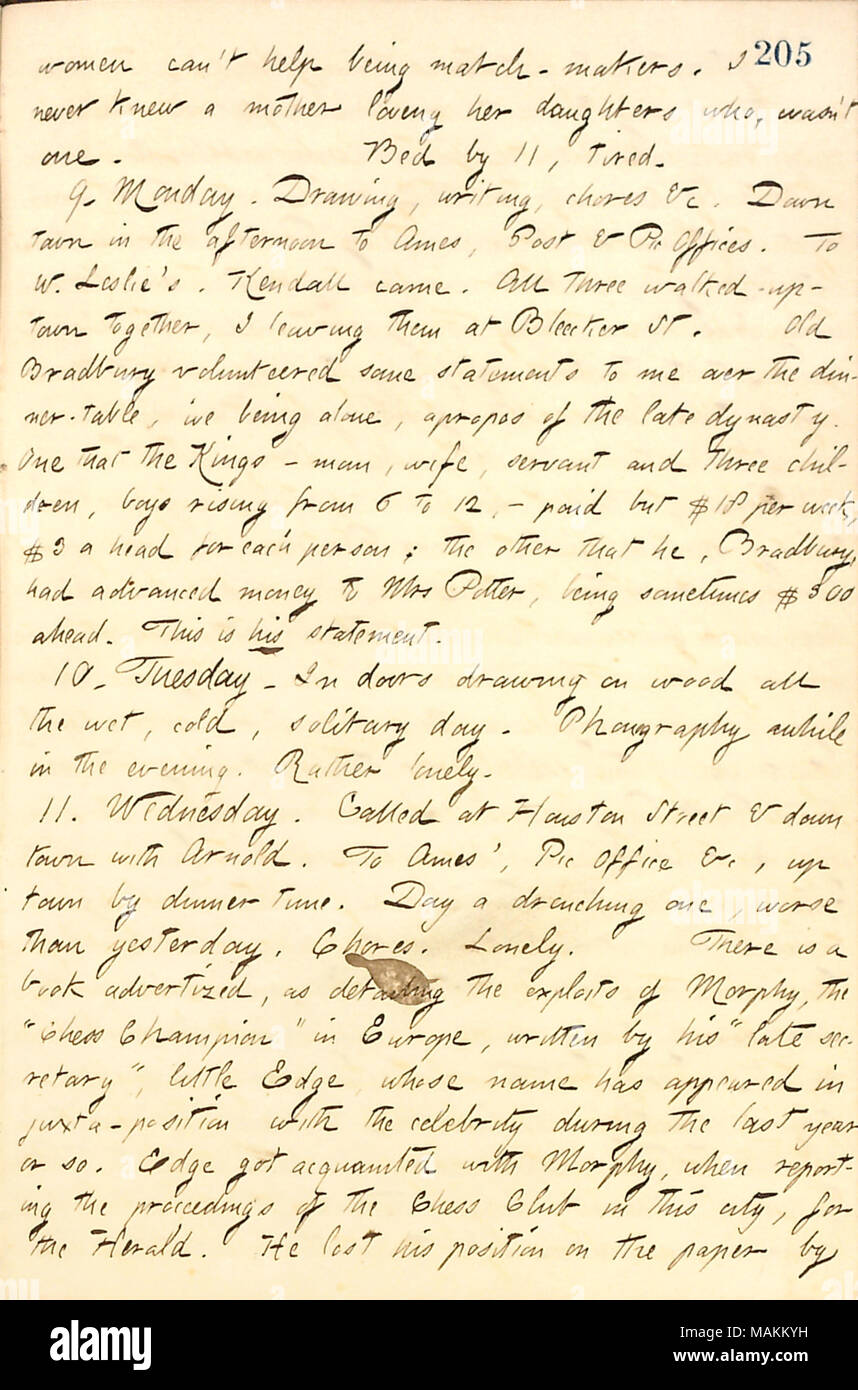 205
women can't help being match-makers. I
never knew a mother loving her daughters who, wasn't
one. Bed by 11, tired.
9. Monday. Drawing, writing, chores &c. Down
town in the afternoon to Ames, Post & Pic Offices. To
W. Leslie's. Kendall came. All three walked up-
town together, I leaving them at Bleecker St. Old
Bradbury volunteered some statements to me over the din-
ner-table, we being alone, apropos of the late dynasty.
One that the Kings - man, wife, servant and three chil-
dren, boys rising from 6 to 12, - paid but $18 per week,
$3 a head for each person; the other that he, Bradbury,
had advanced money to Mrs Potter, being sometimes $300
ahead. This is his statement.
10. Tuesday. In doors drawing on wood all
the wet, cold, solitary day. Phonography awhile
in the evening. Rather lonely.
11. Wednesday. Called at Houston Street & down
town with Arnold. To Ames', Pic Office &c, up
town by dinner time. Day a drenching one, worse
than yesterday. Chores. Lonely. There is a
book advertized, as detailing the exploits of Morphy, the
"Chess Champion" in Europe, written by his "late sec-
retary", little Edge, whose name has appeared in
juxta-position with the celebrity during the last year
or so. Edge got acquainted with Morphy, when report-
ing the proceedings of the Chess Club in this city, for
the Herald. He lost his position on the paper by
alamy
Image ID: MAKKYH
www.alamy.com